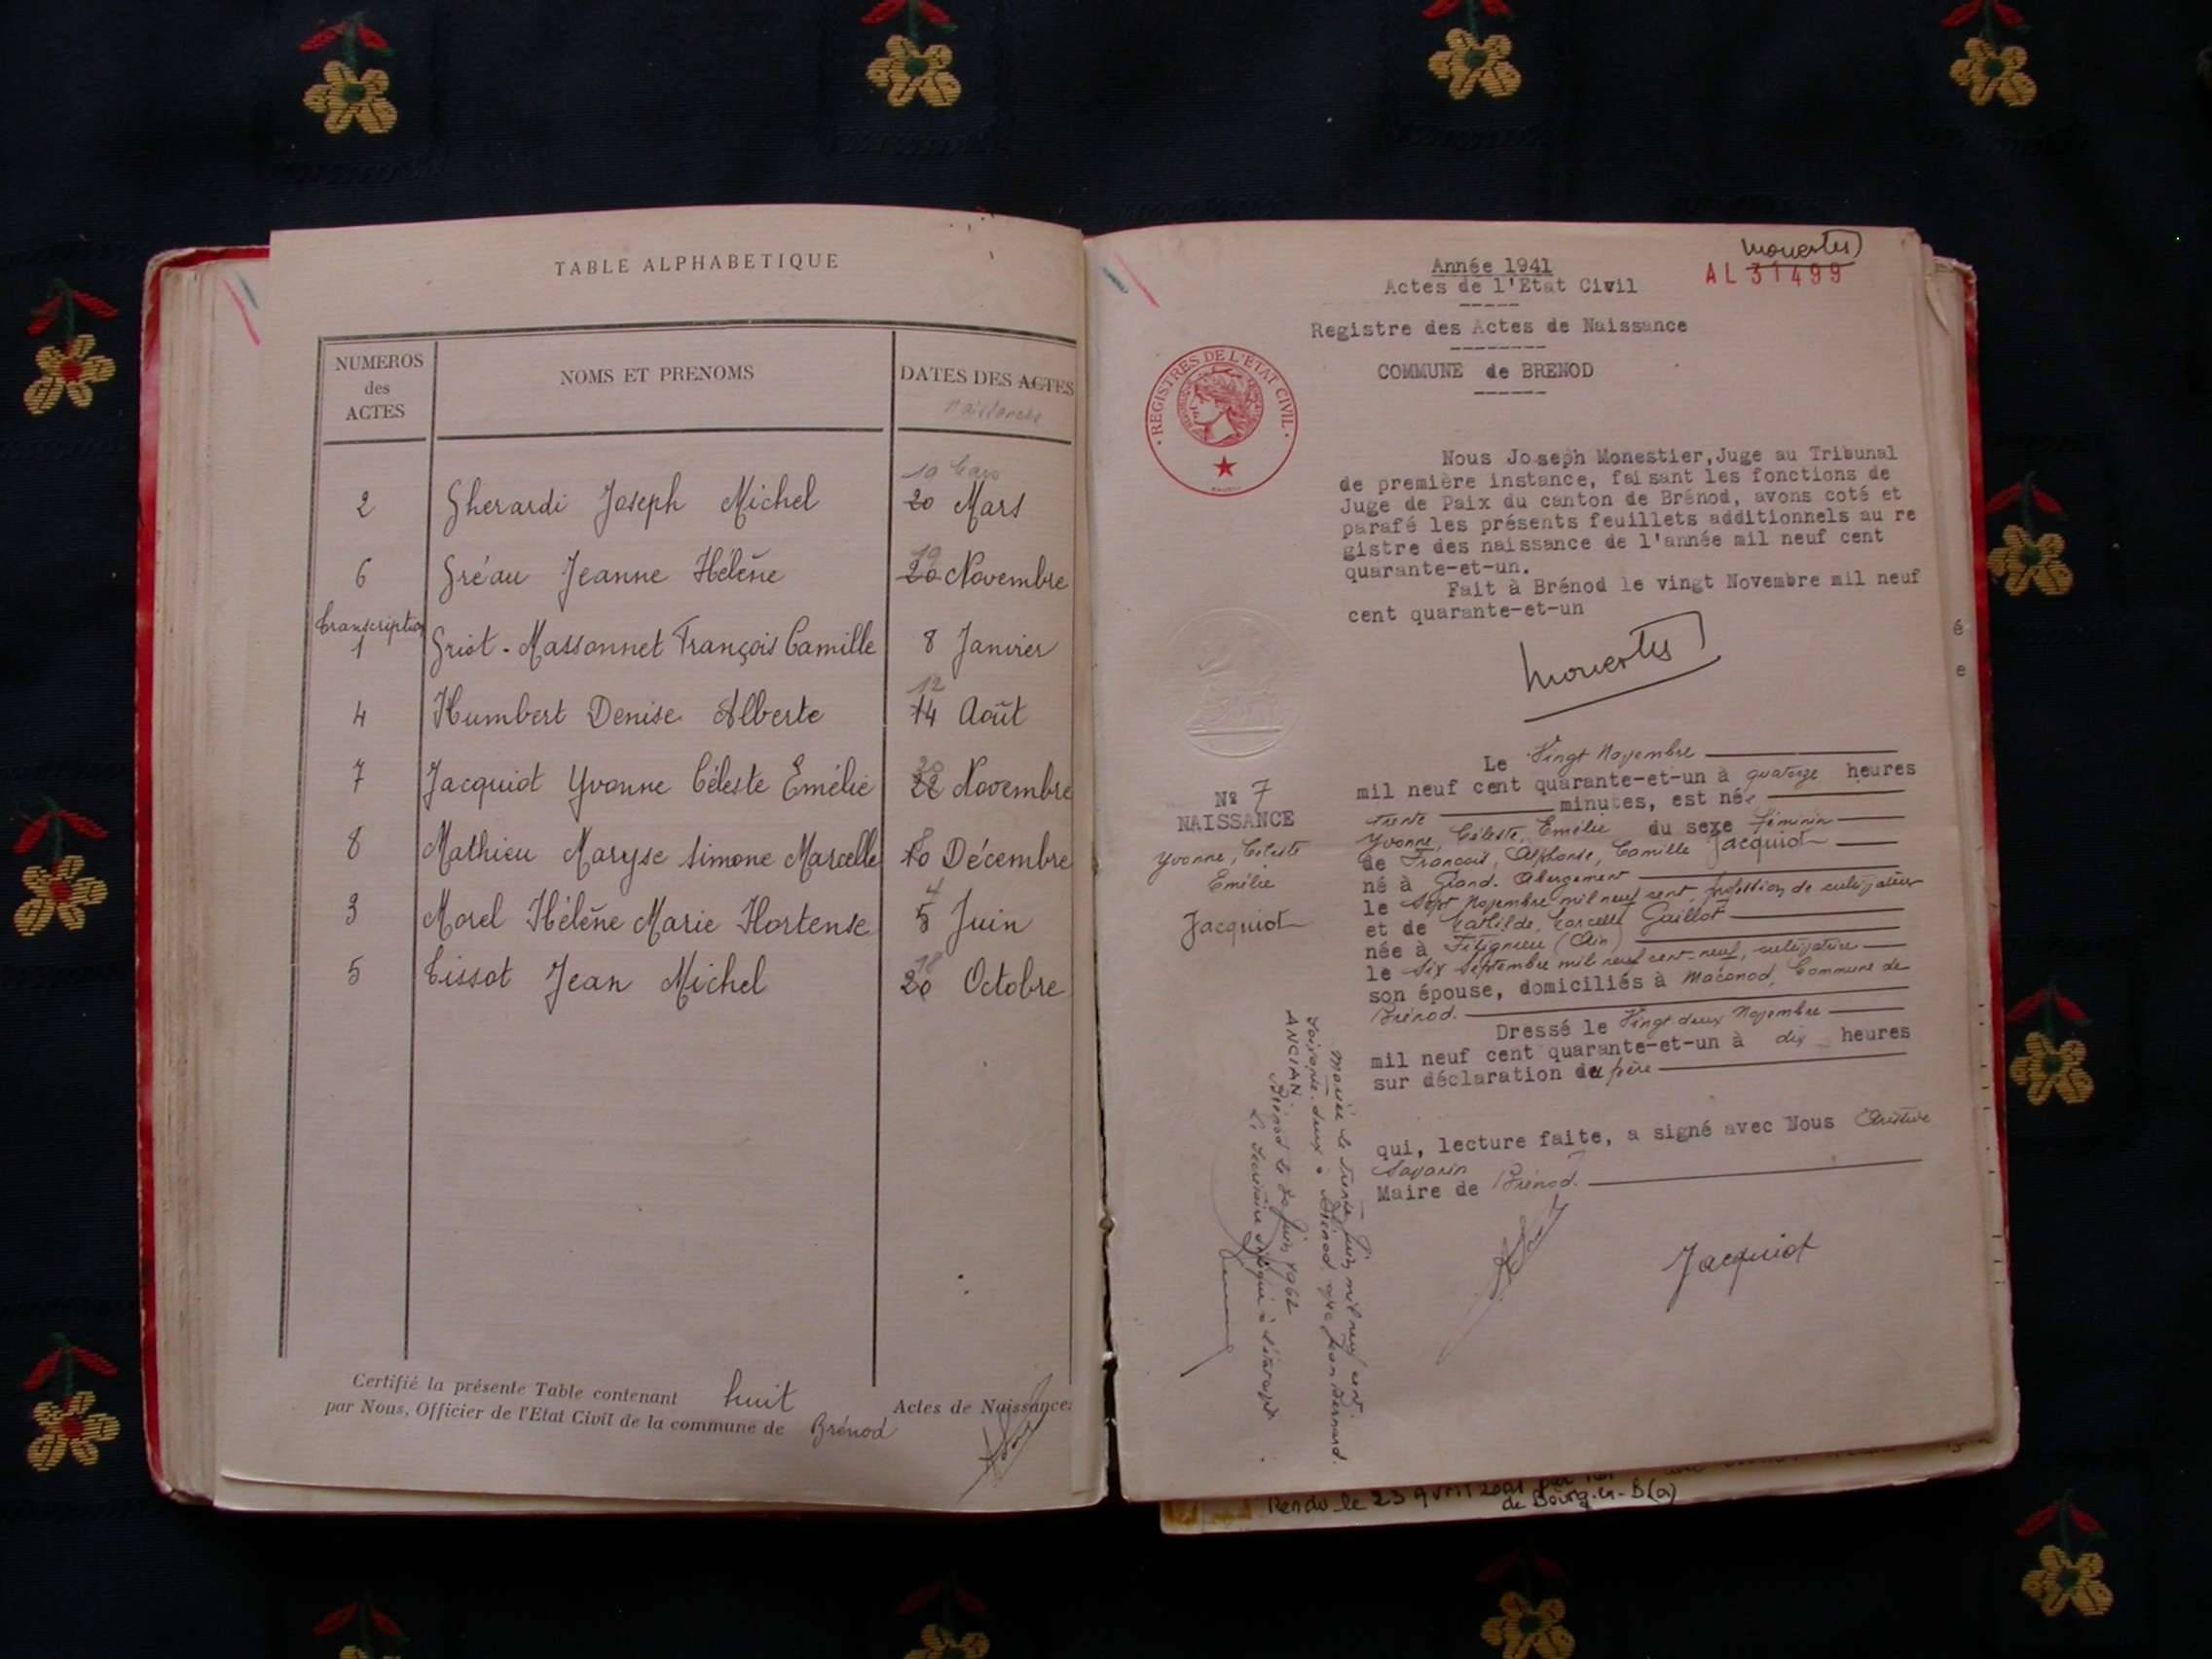 TABLE ALPHABETIQUE
NUMEROS
des
ACTES
NOMS ET PRENOMS
DATES DES ACTES
naissances
19 Mars
2 Gherardi Joseph Michel 20 Mars
19
6 Gréau Jeanne Hélène 20 Novembre
transcription
1 Griot-Massonnet François Camille 8 Janvier
12
4 Humbert Denise Alberte 14 Août
20
7 Jacquiot Yvonne Céleste Emélie 22 Novembre
8
8 Mathieu Maryse Simone Marcelle 10 Décembre
4
3 Morel Hélène Marie Hortense 5 Juin
18
5 Tissot Jean Michel 20 Octobre
Certifié la présente Table contenant huit Actes de Naissances
par Nous, Officier de l'Etat Civil de la commune de Brénod
AL 31499
Année 1941
Actes de l'Etat Civil
Registre des Actes de Naissance
COMMUNE de BRENOD
• REGISTRES DE L'ETAT CIVIL •
Nous Joseph Monestier, Juge au Tribunal
de première instance, faisant les fonctions de
Juge de Paix du canton de Brénod, avons coté et
parafé les présents feuillets additionnels au re
gistre des naissance de l'année mil neuf cent
quarante-et-un.
Fait à Brénod le vingt Novembre mil neuf
cent quarante-et-un
é
e
N° 7
NAISSANCE
Yvonne, Céleste
Emélie
Jacquiot
Le Vingt Novembre
mil neuf cent quarante-et-un à quatorze heures
trente minutes, est née
Yvonne, Céleste, Emélie du sexe féminin
de François, Alphonse, Camille Jacquiot
né à Grand-Abergement
le sept Novembre mil neuf cent, profession de cultivateur
et de Mathilde, Marcelle Gaillot
née à Fitignieu (Ain)
le six Septembre mil neuf cent-neuf, cultivatrice
son épouse, domiciliés à Macconod, Commune de
Brénod.
Dressé le Vingt deux Novembre
mil neuf cent quarante-et-un à dix heures
sur déclaration du père
qui, lecture faite, a signé avec Nous
Savarin
Maire de Brénod.
Jacquiot
Mariée le trente Juin mil neuf cent
soixante-deux à Brénod avec Jean Bernard
ANCIAN
Brénod le 30 Juin 1962
Le Secrétaire délégué à l'état civil
Rendu le 23 avril 2001 par
de Bourg-en-B (01)